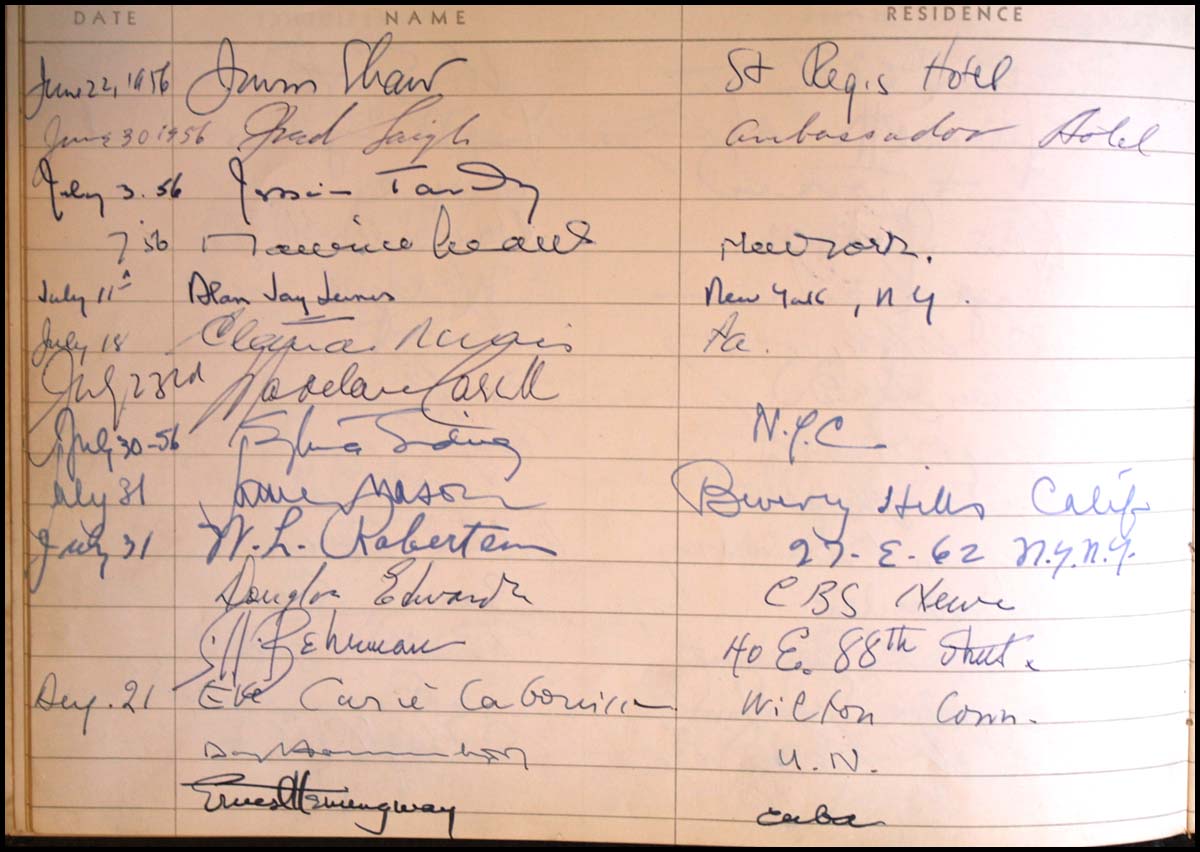 DATE NAME RESIDENCE
June 22, 1956 Irwin Shaw St Regis Hotel
June 30 1956 Fred Saigh Ambassador Hotel
July 3. 56 Jessica Tandy
7 56 Maurice New York.
July 11th Alan Jay Lerner New York, N Y.
July 18 Pa.
July 23rd
July 30-56 N.Y.C
July 31 James Mason Beverly Hills Calif
July 31 W. L. Robertson 27-E-62 N.Y.N.Y.
Douglas Edwards CBS News
S.N. Behrman 40 E. 88th Street.
Aug. 21 Eve Curie Labouisse Wilton Conn.
Dag Hammarskjold U.N.
Ernest Hemingway Cuba